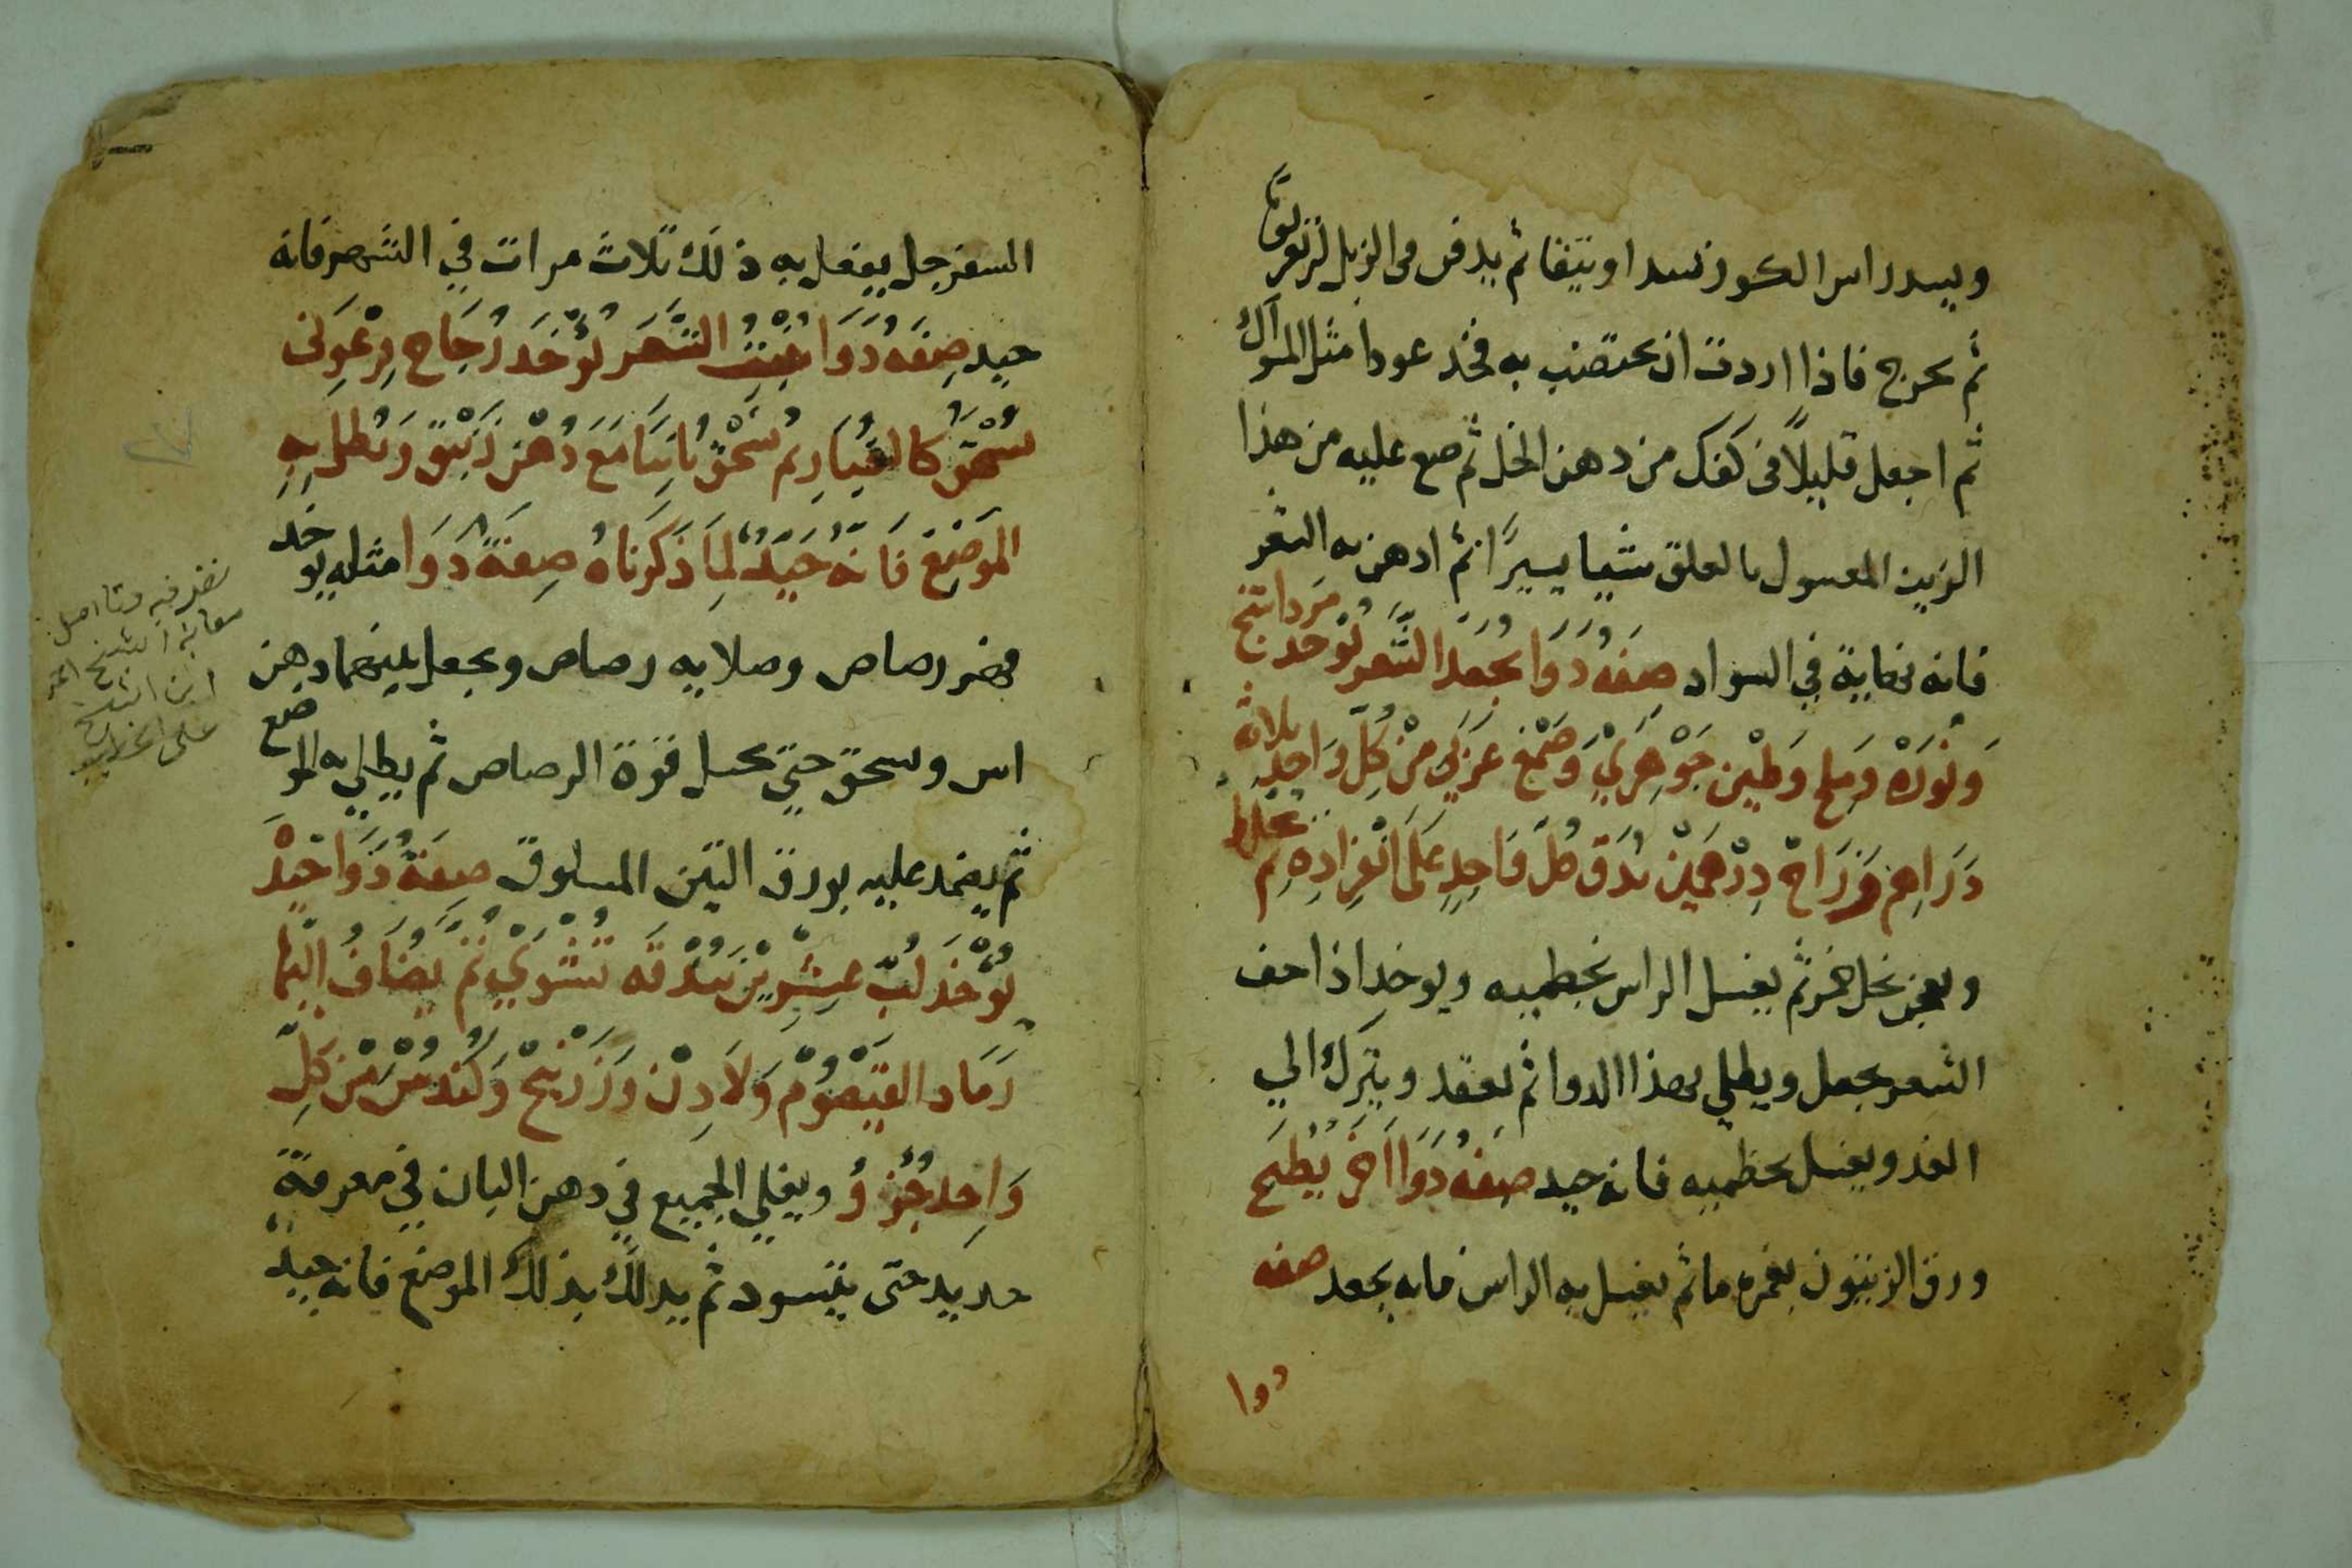 ويسد راس الكوز سدا وثيقا ثم يدفن فى الزبل
ثم يخرج فاذا اردت ان تختضب به فخذ عودا مثل المسواك
ثم اجعل قليلاً فى كفك من دهن الخل ثم ضع عليه من هذا
الزيت المعسول بالعلق شيا يسيرًا ثم ادهن به الشعر
فانه نهاية في السواد صِفَة دَوَا يجعد الشعر يُوخد مرداسنج
وَنُورَة وَملح وَطين جَوْهَرِيْ وَصَمْغ عَرَبي مِنْ كُلِّ وَاحِدٍ ثلاثه
دَرَاهِم وَزَرَاحْ دِرْهَمَيْن يُدَق كُل وَاحِدٍ عَلَى انْفِرَادِهِ ثم يخلط
ويعجن بخل خمر ثم يغسل الراس بخطميه ويوخد اذا جف
الشعر يجعل ويطلي بهذا الدوا ثم يعقد ويترك الي
الغد ويغسل بخطميه فانه جيد صِفَة دَوَا اَخر يُطْبَخ
ورق الزيتون بغمره ما ثم يغسل به الراس فانه يجعد صفه
دوا
السفرجل يفعل به ذلك ثلاث مرات في الشهر فانه
جيد صِفَة دَوَا يُنبِتُ الشعَر يُوْخَد زُجَاج فِرْعَوني
يُسْحَق كَالغُبَارِ ثم يُسْحَق ثانِيًا مَعَ دُهْن زَنْبَق وَيُطلى بِهِ
الموَضِع فَانهُ جَيّدٌ لِمَا ذَكَرنَاهُ صِفَة دَوَا مثله يوخد
فهر رصاص وصلايه رصاص ويجعل بينهما دهن
اس ويسحق حتي تحل قوة الرصاص ثم يطلي به الموضع
ثم يضمد عليه بورق التين المسلوق صِفَة دَوَا جَيِّدْ
يُوْخَذ لُبّ عِشْرِيْن بُنْدُقَه تُشْوَيْ ثُمَّ يُضَافُ اليْهَا
رَمَاد القَيْصُوْمْ وَلَادِنْ وَزَرْنِيْخْ وَكُنْدُسْ مِنْ كُلِّ
وَاحِد جُزؤ ويغلي الجميع في دهن البان في مغرفة
حديد حتى يسود ثم يدلك بذلك الموضع فانه جيدٌ